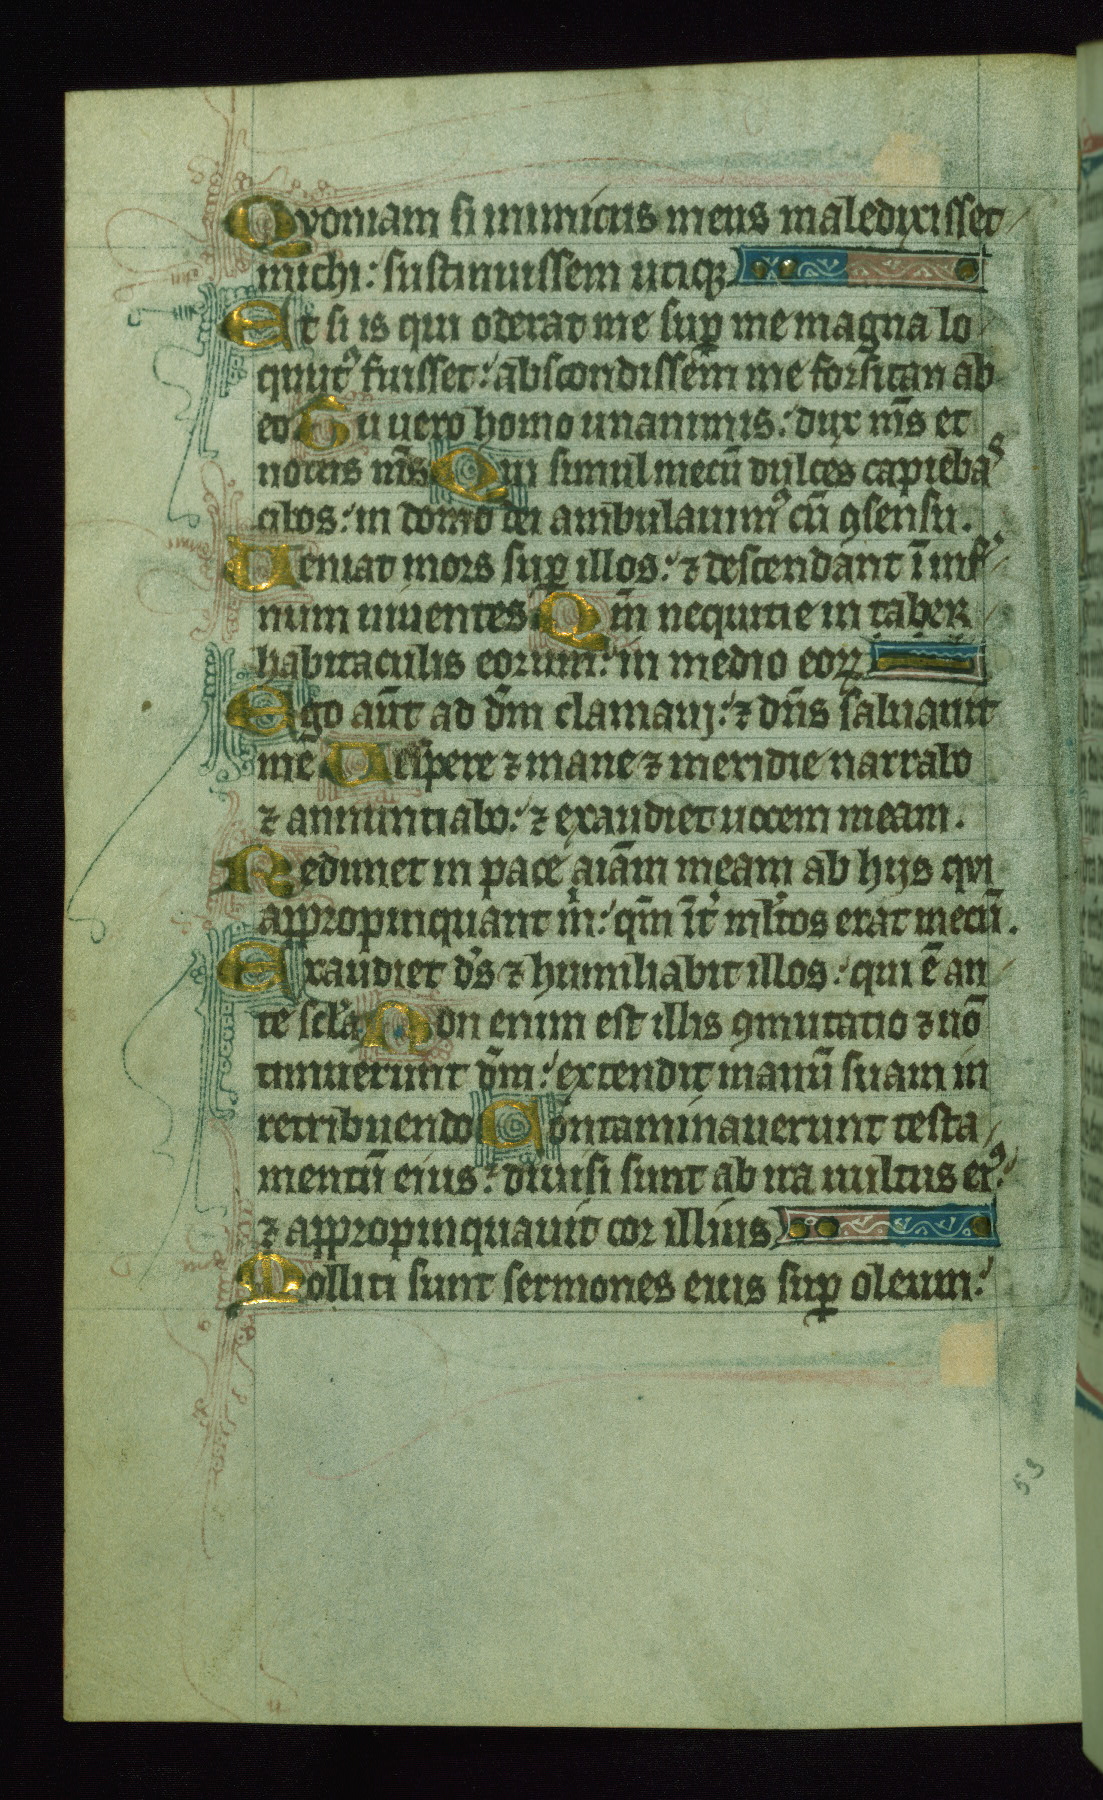 Quoniam si inimicus meus maledixisset
michi: sustinuissem utiqꝫ
Et si is qui oderat me suꝑ me magna lo
quutꝰ fuisset: abscondissem me forsitan ab
eo Tu uero homo unanimis: dux m̅s et
notus m̅s Qui simul mecū dulces capiebas
cibos: in domo dei ambulauimꝰ cū ꝯsensu.
Ueniat mors suꝑ illos: ⁊ descendant ī inf̄
num uiuentes Qm̅ nequitie in taber
habitaculis eorum: in medio eoꝝ
Ego aūt ad dm̅ clamaui: ⁊ dn̅s saluauit
me Uesꝑere ⁊ mane ⁊ meridie narrabo
⁊ annuntiabo: ⁊ exaudiet uocem meam.
Redimet in pace aīam meam ab hijs qui
appropinquant m̅: qm̅ int̓ ml̓tos erat mecū.
Exaudiet ds̅ ⁊ humiliabit illos: qui ē an
te scl̓a Non enim est illis ꝯmutatio ⁊ nō
timuerunt dm̅: extendit manū suam in
retribuendo Contaminauerunt testa
mentū eius: diuisi sunt ab ira uultus eiꝰ:
⁊ appropinquauit cor illius
Molliti sunt sermones eius suꝑ oleum:
53